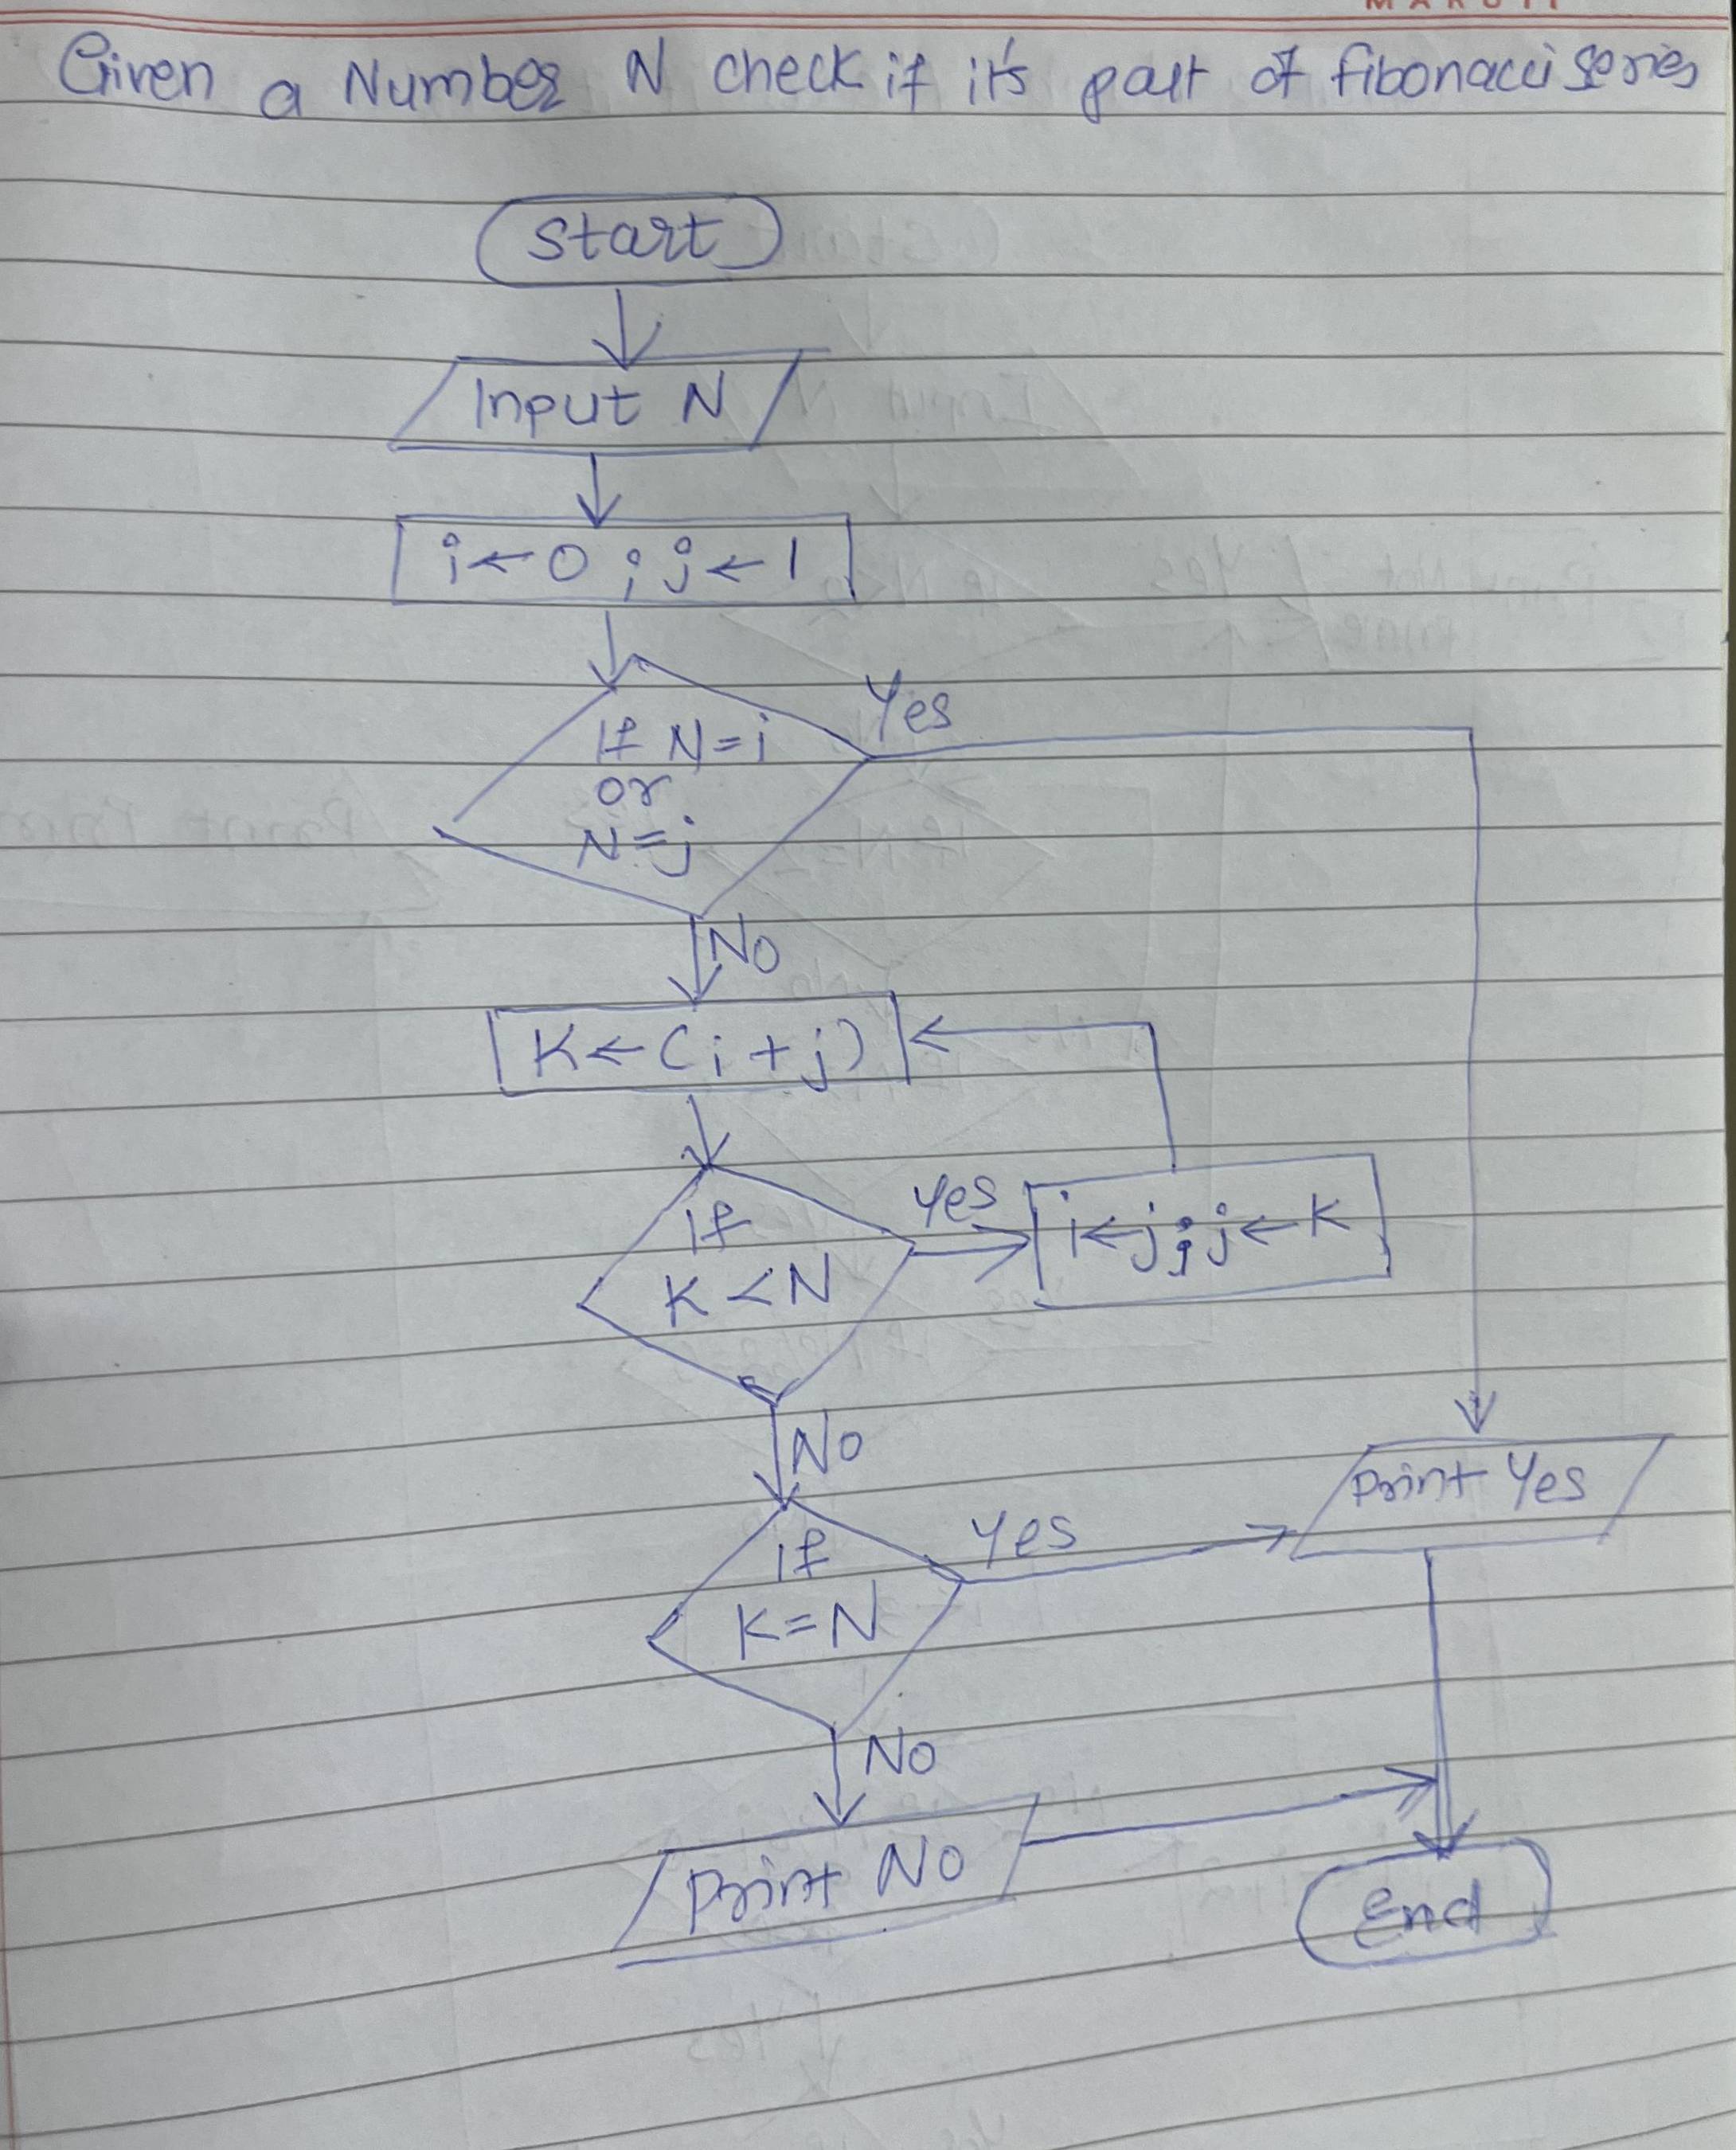 MARUTI
Given a Number N check if it's part of fibonacci series
Start
Input N
i ← 0 ; j ← 1
If N=i
or
N=j
Yes
No
K ← (i + j)
If
K < N
Yes
i ← j ; j ← K
No
If
K = N
Yes
Print Yes
No
Print No
End